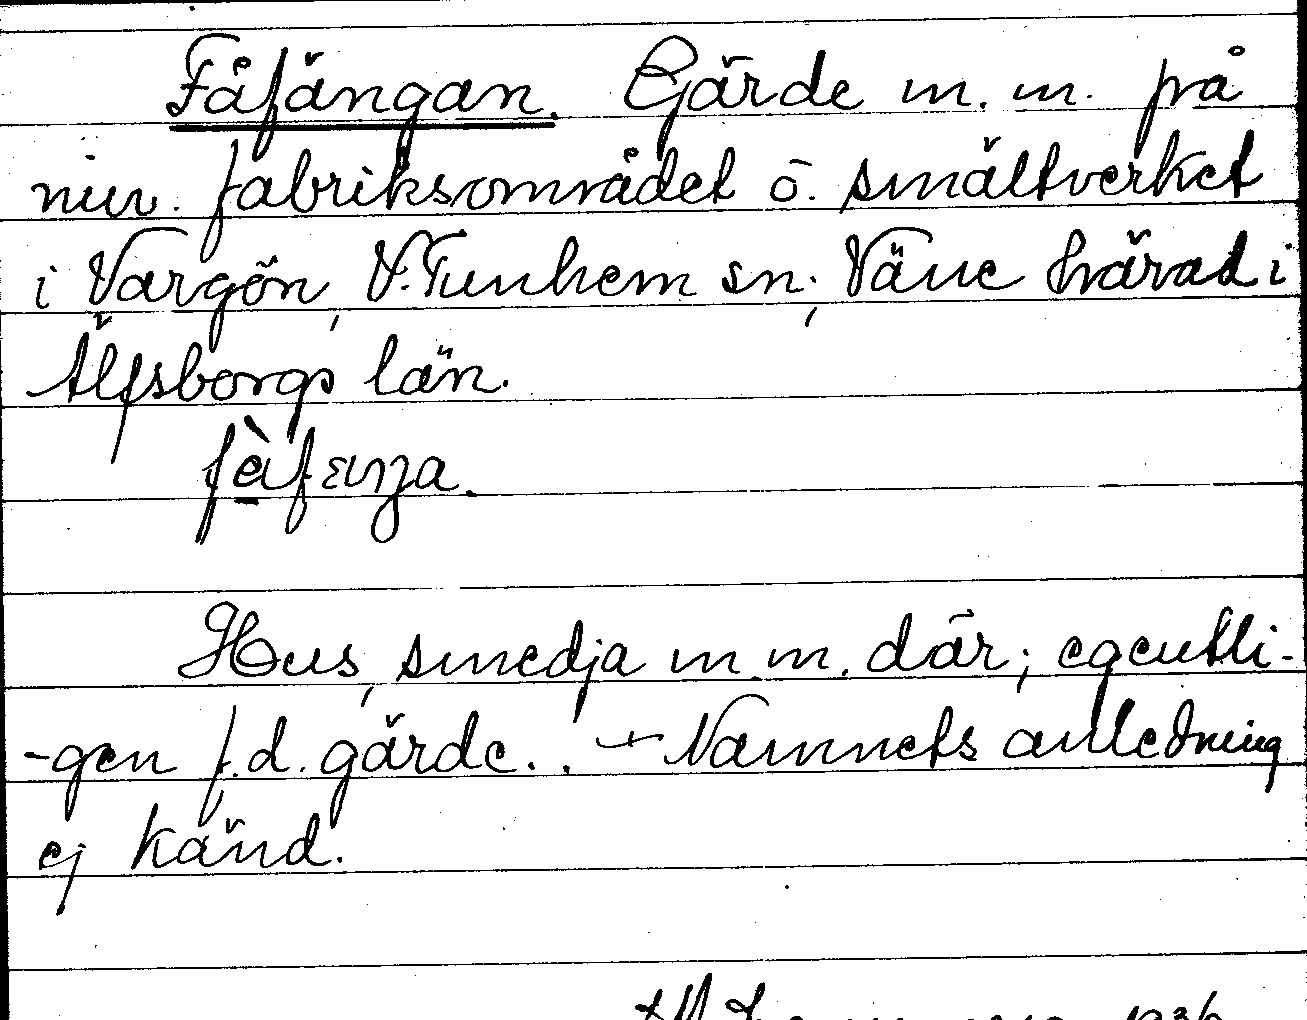 Fåfängan. Gärde m.m. på
nuv. fabriksområdet ö. smältverket
i Vargön, V. Tunhem sn; Väne härad i
Älfsborgs län.
fàfεŋa.
Hus, smedja m.m. där; egentli-
-gen f.d. gärde.. — Namnets anledning
ej känd.
1936